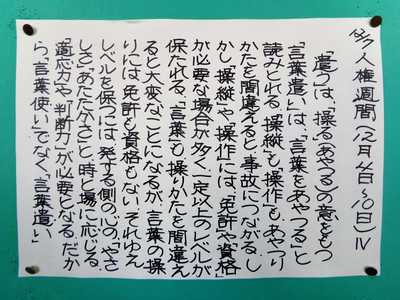 人権週間(12月4日~10日)Ⅳ
「遣う」は、「操る(あやつる)」の意をもつ
「言葉遣い」は、「言葉をあやつる」と
読みとれる。「操縦」も「操作」も、あやつり
かたを間違えると、事故につながる。し
かし、「操縦」や「操作」には、「免許や資格」
が必要な場合が多く、一定以上のレベルが
保たれる。「言葉」も、操りかたを間違え
ると大変なことになるが、言葉の操
りには、免許も資格もない。それゆえ、
レベルを保つには、発する側の心の「やさ
しさ」「あたたかさ」と、時と場に応じる
「適応力」や「判断力」が必要となる。だか
ら、「言葉使い」でなく、「言葉遣い」